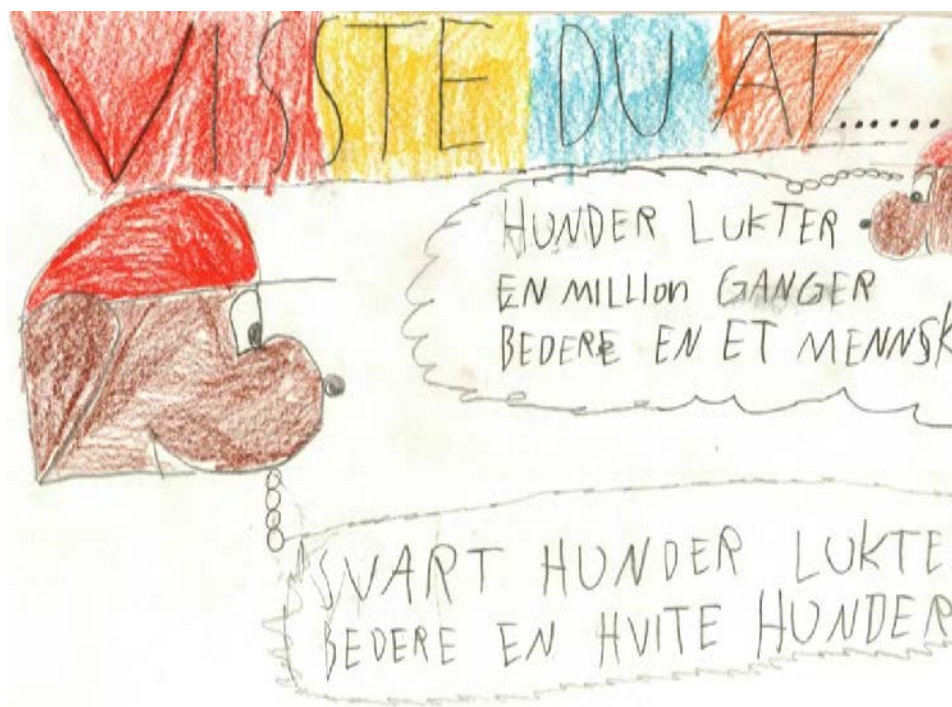 VISSTE DU AT......
HUNDER LUKTER
EN MILLION GANGER
BEDERE EN ET MENNSK
SVART HUNDER LUKTE
BEDERE EN HVITE HUNDER